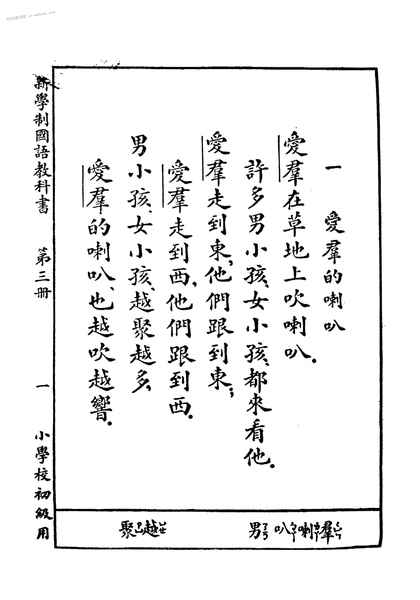 一 愛羣的喇叭
愛羣在草地上吹喇叭。
許多男小孩、女小孩、都來看他。
愛羣走到東、他們跟到東；
愛羣走到西、他們跟到西。
男小孩、女小孩、越聚越多、
愛羣的喇叭、也越吹越響。
新學制國語教科書 第三冊 一 小學校初級用
羣 喇 叭 男 越 聚